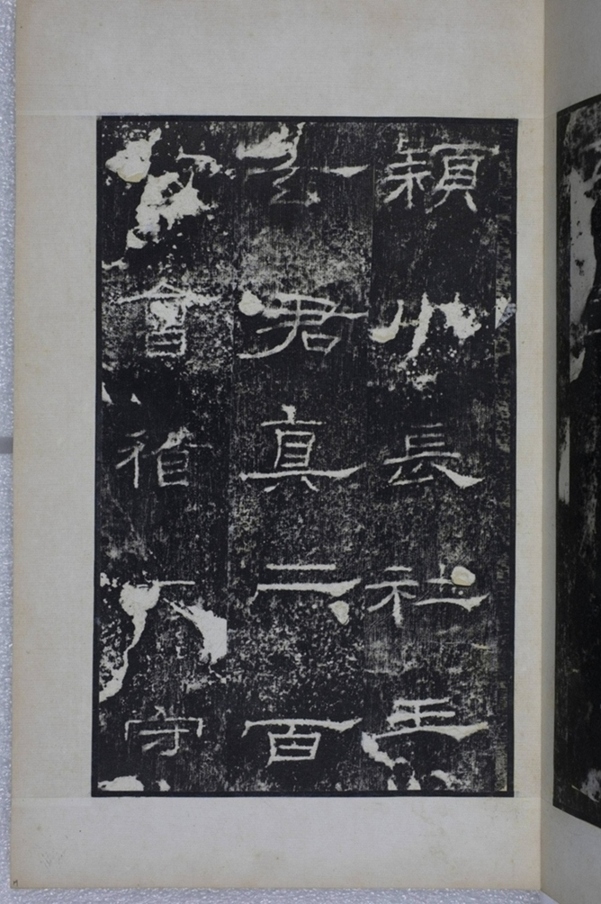 穎川長社王
玄君真二百
會稽大守